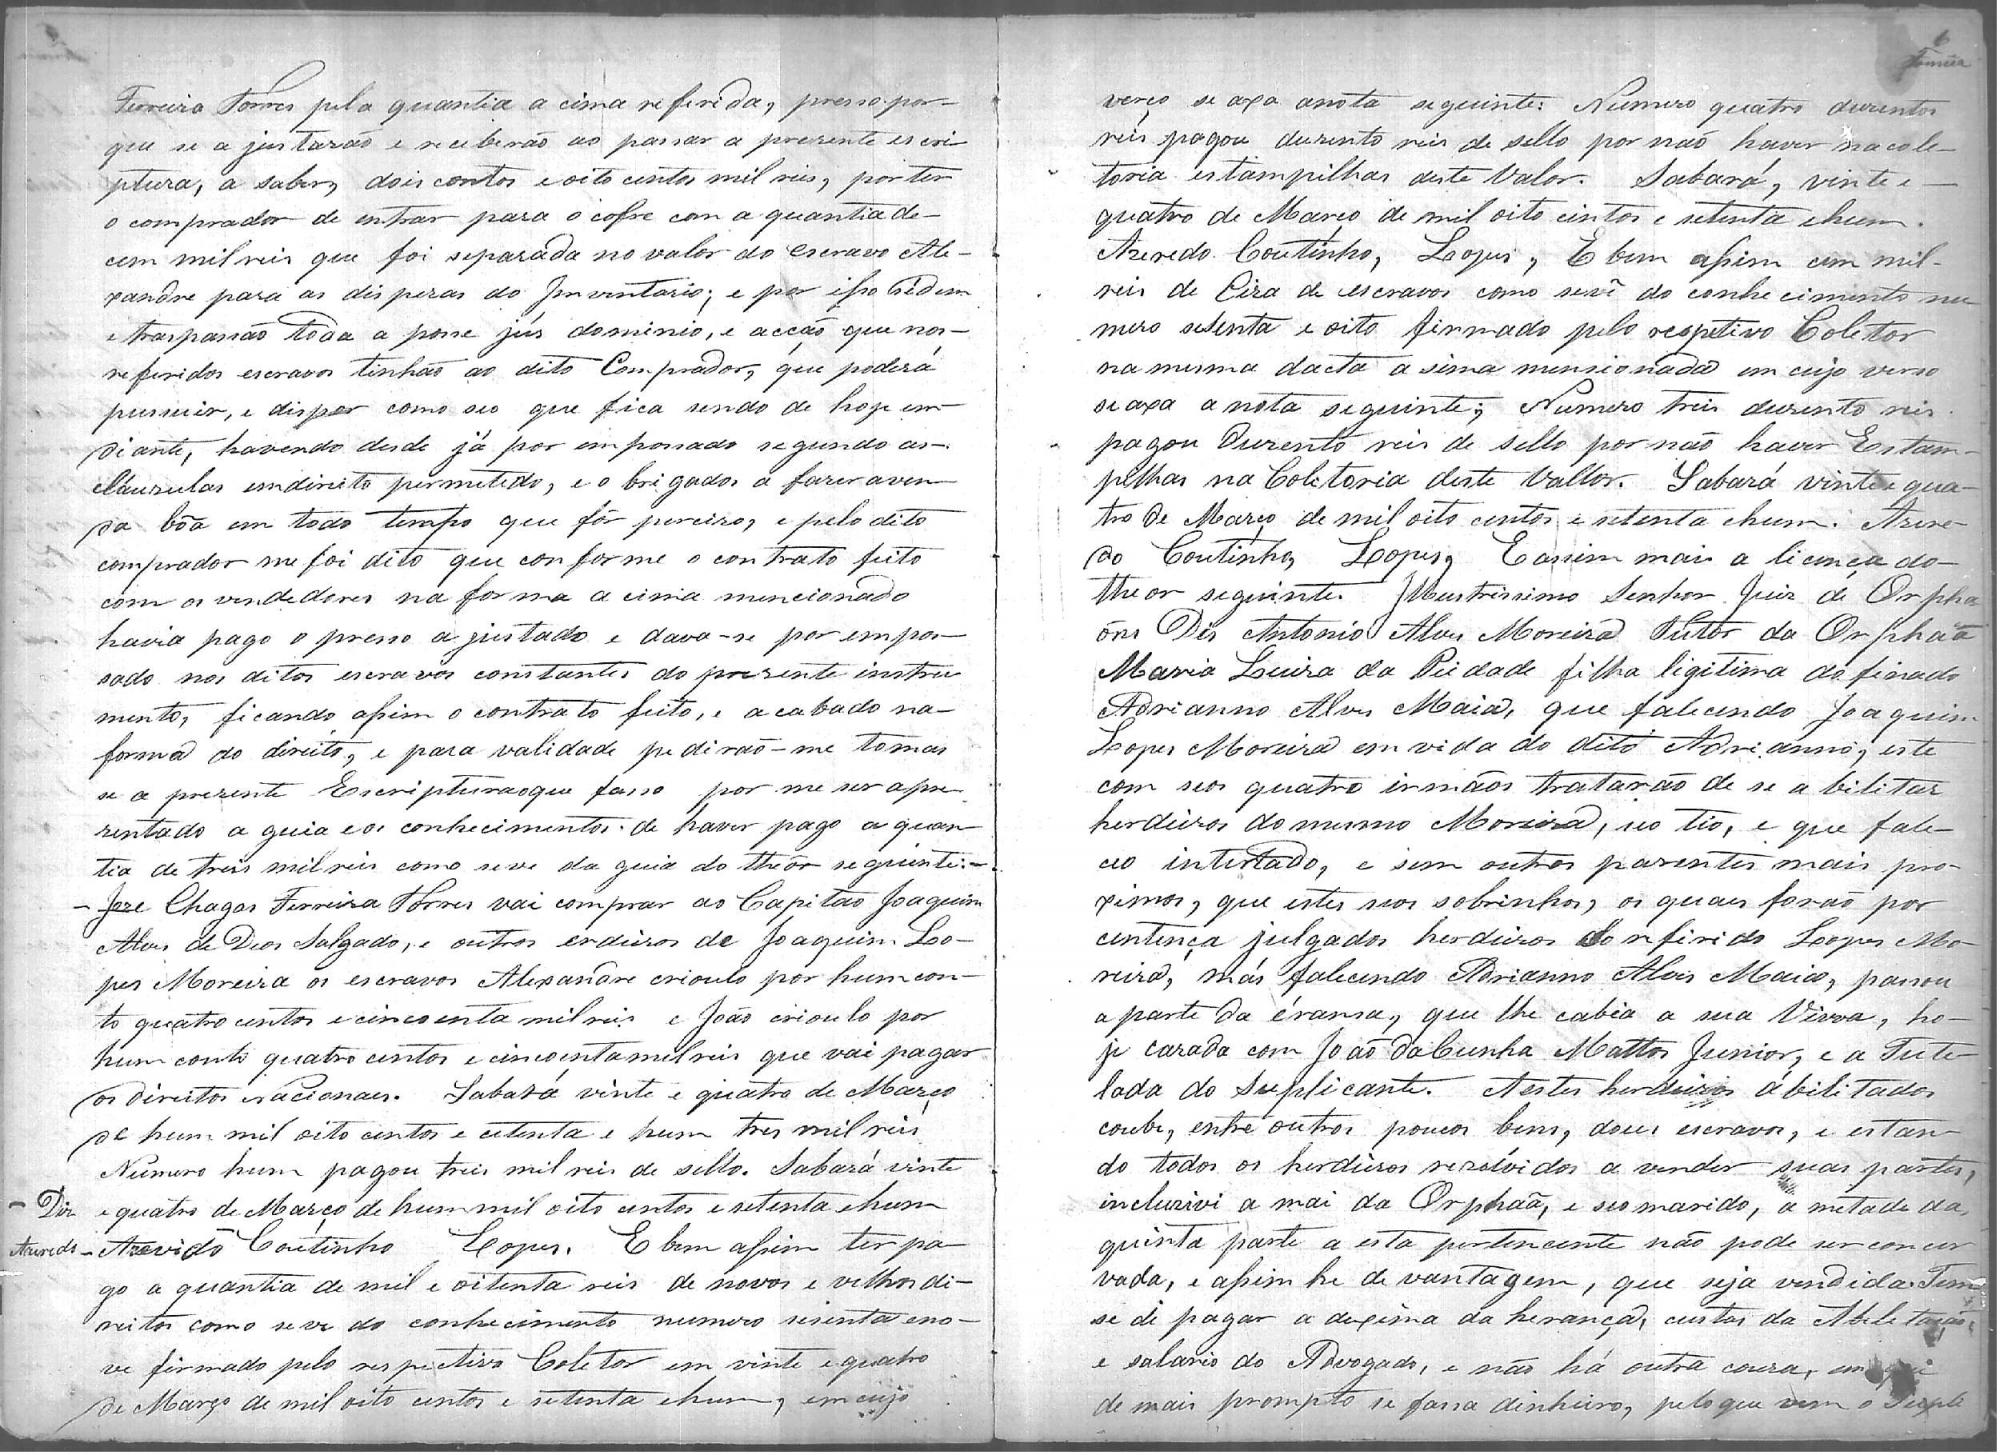 Ferreira Torres pela quantia a cima referida, presso por-
que se a justarão e receberão ao passar a prezente escri-
ptura, a saber, dois contos e oito centos mil reis, por ter
o comprador de entrar para o cofre com a quantia de-
cem mil reis que foi separada no valor do escravo Ale-
xandre para as dispezas do Inventario; e por isso sedem
e traspassão toda a posse jús dominio, e acção que nos-
referidos escravos tinhão ao dito Comprador, que poderá
pussuir, e dispor como seo que fica sendo de hoje em-
diante, havendo desde já por empossado segundo as-
cláuzulas emdireito permetido, e o brigados a fazer a ven
da bôa em todo tempo que fôr precizo, e pelo dito
comprador me foi dito que conforme o contrato feito
com os vendedores na forma a cima mencionado
havia pago o presso a justado e dava-se por empos-
sado nos ditos escravos constantes do prezente instru
mento, ficando assim o contrato feito, e acabado na-
forma do direito, e para validade pedirão-me tomas
se a prezente Escriptura o que fasso por me ser apre
zentado a guia e os conhecimentos de haver pago a quan
tia de treis mil reis como se ve da guia do theôr seguinte:-
- Joze Chagas Ferreira Torres vai comprar ao Capitão Joaquim
Alves de Deos Salgado, e outros erdeiros de Joaquim Lo-
pes Moreira os escravos Alexandre crioulo por hum con-
to quatro centos e cincoenta mil reis e João crioulo por
hum conto quatro centos e cincoenta mil reis que vai pagar
os direitos nacionaes. Sabará vinte e quatro de Março
de hum mil oito centos e cetenta e hum tres mil reis
Numero hum pagou treis mil reis de sello. Sabará vinte
- Diz e quatro de Março de hum mil oito centos e setenta e hum
Azeredo - Azevido Coutinho Lopes. E bem assim ter pa-
go a quantia de mil e oitenta reis de novos e velhos di-
reitos como se ve do conhecimento numero sesenta e no-
ve firmado pelo respectivo Coletor em vinte e quatro
de Março de mil oito centos e setenta e hum, em cujo
verço se axa a nota seguinte: Numero quatro duzentos
reis pagou duzento reis de sello por não haver na cole-
toria estampilhas deste Valor. Sabará, vinte e-
quatro de Março de mil oito centos e setenta e hum.
Azeredo Coutinho, Lopes, E bem assim cem mil-
reis de Ciza de escravos como se vê do conhecimento nu
mero setenta e oito firmado pelo resptivo Coletor
na mesma dacta a sima mensionada em cujo verso
se axa a nota seguinte; Numero treis duzento reis
pagou Duzento reis de sello por não haver Estam-
pilhas na Coletoria deste Vallor. Sabará vinte e qua-
tro de Março de mil oito centos e setenta e hum. Azere-
do Coutinho, Lopes, E assim mais a licença do-
theor seguinte. Illustrissimo Senhor Juiz de Orpha
õns Dis Antonio Alves Moreira Tutor da Orphaã
Maria Luiza da Piedade filha ligitima do finado
Adrianno Alves Maia, que falecendo Joaquim
Lopes Moreira em vida do dito Adrianno, este
com seos quatro irmãos tratarão de se a bilitar
herdeiros do mesmo Moreira, seo tio, e que fale-
ceo intestado, e sem outros parentes mais pro-
ximos, que estes seos sobrinhos, os quaes forão por
centença julgados herdeiros do referido Lopes Mo-
reira, más falecendo Adrianno Alves Maia, passou
a parte da éransa, que lhe cabia a sua Viuva, ho-
je cazada com João da Cunha Mattos Junior, e a Tute-
lada do Suplicante. Aestes herdeiros ábilitados
coube, entre outros poucos bens, dous escravos, e estan
do todos os herdeiros rezolvidos a vender suas partes,
inclusivi a mai da Orphaã, e seo marido, a metade da
quinta parte a esta pertencente não pode ser concer
vada, e assim he de vantagem, que seja vendida. Tem
se di pagar a dexima da herança, custas da Abeletação,
e salario do Advogado, e não há outra couza, em que
de mais prompto se fassa dinheiro, pelo que vem o Supli